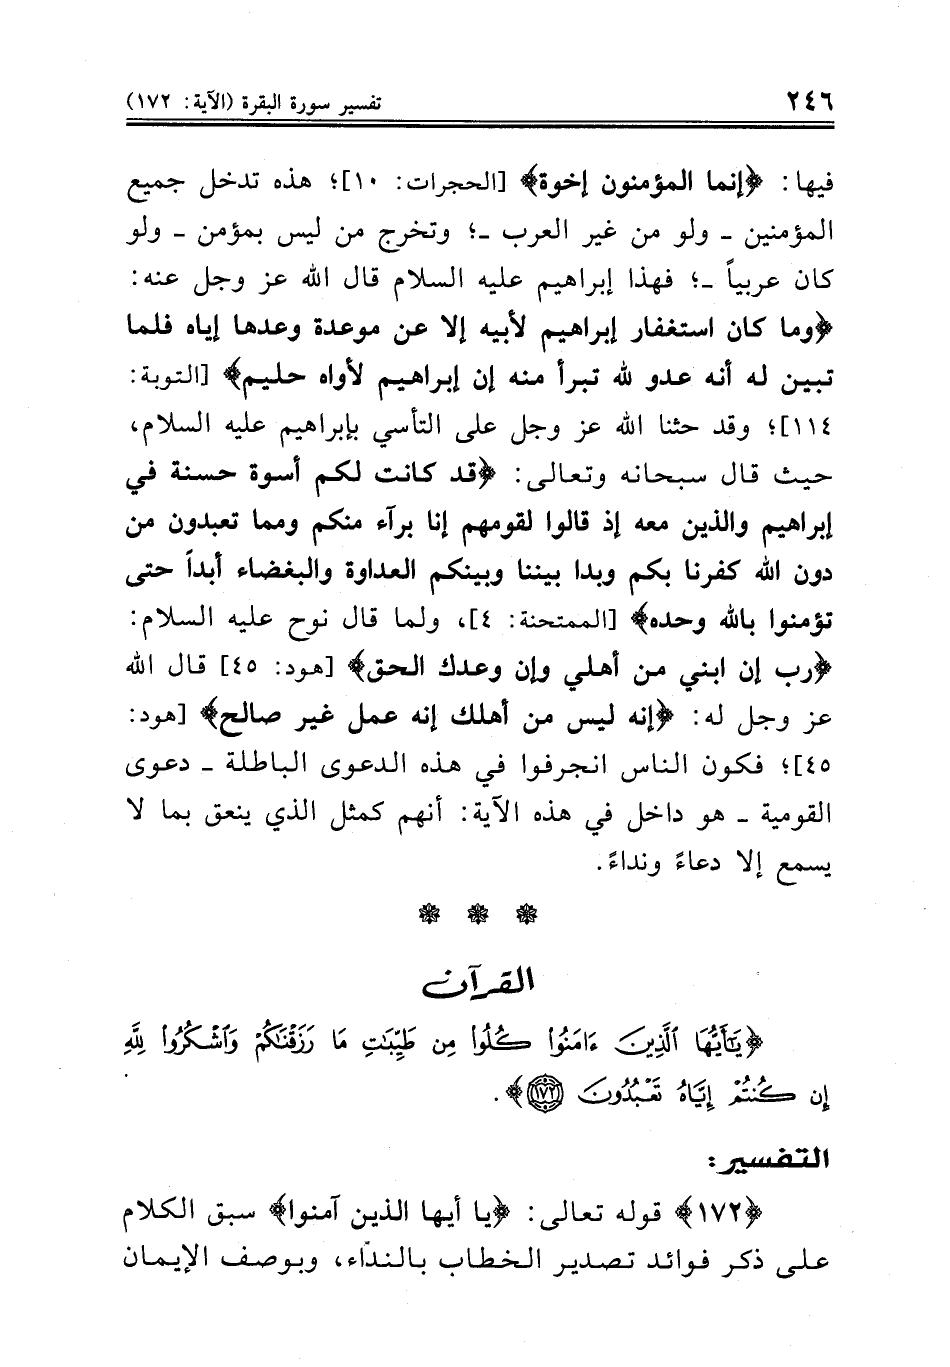 ٢٤٦ تفسير سورة البقرة (الآية: ١٧٢)
فيها: ﴿إنما المؤمنون إخوة﴾ [الحجرات: ١٠]؛ هذه تدخل جميع
المؤمنين ـ ولو من غير العرب ـ؛ وتخرج من ليس بمؤمن ـ ولو
كان عربياً ـ؛ فهذا إبراهيم عليه السلام قال الله عز وجل عنه:
﴿وما كان استغفار إبراهيم لأبيه إلا عن موعدة وعدها إياه فلما
تبين له أنه عدو لله تبرأ منه إن إبراهيم لأواه حليم﴾ [التوبة:
١١٤]؛ وقد حثنا الله عز وجل على التأسي بإبراهيم عليه السلام،
حيث قال سبحانه وتعالى: ﴿قد كانت لكم أسوة حسنة في
إبراهيم والذين معه إذ قالوا لقومهم إنا برآء منكم ومما تعبدون من
دون الله كفرنا بكم وبدا بيننا وبينكم العداوة والبغضاء أبداً حتى
تؤمنوا بالله وحده﴾ [الممتحنة: ٤]، ولما قال نوح عليه السلام:
﴿رب إن ابني من أهلي وإن وعدك الحق﴾ [هود: ٤٥] قال الله
عز وجل له: ﴿إنه ليس من أهلك إنه عمل غير صالح﴾ [هود:
٤٥]؛ فكون الناس انجرفوا في هذه الدعوى الباطلة ـ دعوى
القومية ـ هو داخل في هذه الآية: أنهم كمثل الذي ينعق بما لا
يسمع إلا دعاءً ونداءً.
القرآن
﴿يَٰٓأَيُّهَا ٱلَّذِينَ ءَامَنُوا۟ كُلُوا۟ مِن طَيِّبَٰتِ مَا رَزَقْنَٰكُمْ وَٱشْكُرُوا۟ لِلَّهِ
إِن كُنتُمْ إِيَّاهُ تَعْبُدُونَ ١٧٢﴾.
التفسير:
﴿١٧٢﴾ قوله تعالى: ﴿يا أيها الذين آمنوا﴾ سبق الكلام
على ذكر فوائد تصدير الخطاب بالنداء، وبوصف الإيمان